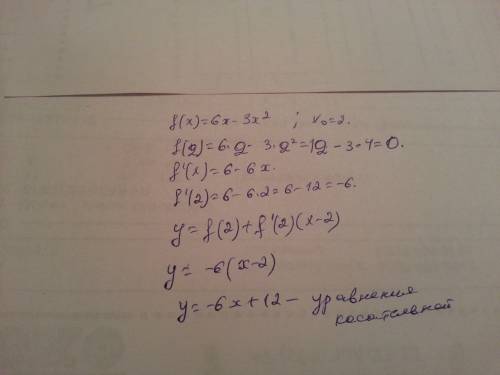 f(x)=6x-3x² ; x₀=2.
f(2)=6·2-3·2²=12-3·4=0.
f'(x)=6-6x.
f'(2)=6-6·2=6-12=-6.
y=f(2)+f'(2)(x-2)
y=-6(x-2)
y=-6x+12- уравнения
касательной